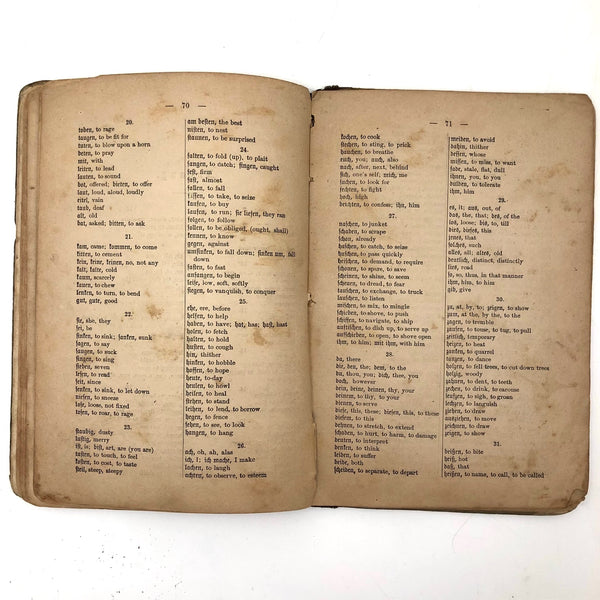 — 70 —
20.
toben, to rage
taugen, to be fit for
tuten, to blow upon a horn
beten, to pray
mit, with
leiten, to lead
lauten, to sound
bat, offered; bieten, to offer
laut, loud, aloud, loudly
eitel, vain
taub, deaf
alt, old
bat, asked; bitten, to ask
21.
kam, came; kommen, to come
kitten, to cement
kein, keine, keinen, no, not any
kalt, kalte, cold
kaum, scarcely
kauen, to chew
lenken, to turn, to bend
gut, gute, good
22.
sie, she, they
sei, be
sinken, to sink; sanken, sunk
sagen, to say
saugen, to suck
singen, to sing
sieben, seven
lesen, to read
seit, since
senken, to sink, to let down
niesen, to sneeze
lose, loose, not fixed
tosen, to roar, to rage
23.
staubig, dusty
lustig, merry
ist, is; bist, art, are (you are)
tasten, to touch, to feel
kosten, to cost, to taste
steil, steep, sleepy
am besten, the best
nisten, to nest
staunen, to be surprised
24.
falten, to fold (up), to plait
fangen, to catch; fingen, caught
fest, firm
fast, almost
fallen, to fall
fassen, to take, to seize
kaufen, to buy
laufen, to run; sie liefen, they ran
folgen, to follow
sollen, to be obliged, (ought, shall)
kennen, to know
gegen, against
umsinken, to fall down; sanken um, fall
down
fasten, to fast
anfangen, to begin
leise, low, soft, softly
siegen, to vanquish, to conquer
25.
ehe, ere, before
helfen, to help
haben, to have; hat, has; hast, hast
holen, to fetch
halten, to hold
husten, to cough
hin, thither
hinken, to hobble
hoffen, to hope
heute, to-day
heulen, to howl
heilen, to heal
stehen, to stand
leihen, to lend, to borrow
hegen, to fence
sehen, to see, to look
hangen, to hang
26.
ach, oh, ah, alas
ich, I; ich mache, I make
lachen, to laugh
achten, to observe, to esteem
— 71 —
kochen, to cook
stechen, to sting, to prick
hauchen, to breathe
euch, you; auch, also
nach, after, next, behind
sich, one's self; mich, me
suchen, to look for
fechten, to fight
hoch, high
beichten, to confess; ihn, him
27.
naschen, to junket
schaben, to scrape
schon, already
haschen, to catch, to seize
huschen, to pass quickly
heischen, to demand, to require
schonen, to spare, to save
scheinen, to shine, to seem
scheuen, to dread, to fear
tauschen, to exchange, to truck
lauschen, to listen
mischen, to mix, to mingle
schieben, to shove, to push
schiffen, to navigate, to ship
auftischen, to dish up, to serve up
aufschieben, to open, to shove open
ihm, to him; mit ihm, with him
28.
da, there
die, der, das; dem, to the
du, thou, you; dich, thee, you
doch, however
dein, deine, deinen, thy, your
deinem, to thy, to your
dienen, to serve
diese, this, these; diesen, this, to these
diesem, to this
dehnen, to stretch, to extend
schaden, to hurt, to harm, to damage
deuten, to interpret
denken, to think
leiden, to suffer
beide, both
scheiden, to separate, to depart
meiden, to avoid
dahin, thither
dessen, whose
missen, to miss, to want
fade, stale, flat, dull
ihnen, you, to you
dulden, to tolerate
ihn, him
29.
es, it; aus, out, of
das, the, that; des, of the
los, loose; bis, to, till
dies, dieses, this
jenes, that
solches, such
alles, all; altes, old
deutlich, distinct, distinctly
lies, read
so, so, thus, in that manner
ihn, him, to him
gib, give
30.
zu, at, by, to; zeigen, to show
zum, at the, by the, to the
zagen, to tremble
zausen, to touse, to tug, to pull
zeitlich, temporary
heizen, to heat
zanken, to quarrel
tanzen, to dance
holzen, to fell trees, to cut down trees
holzig, woody
zahnen, to dent, to teeth
zechen, to drink, to carouse
seufzen, to sigh, to groan
lechzen, to languish
ziehen, to draw
ausziehen, to move
zeichnen, to draw
zeigen, to show
31.
beißen, to bite
heiß, hot
daß, that
heißen, to name, to call, to be called